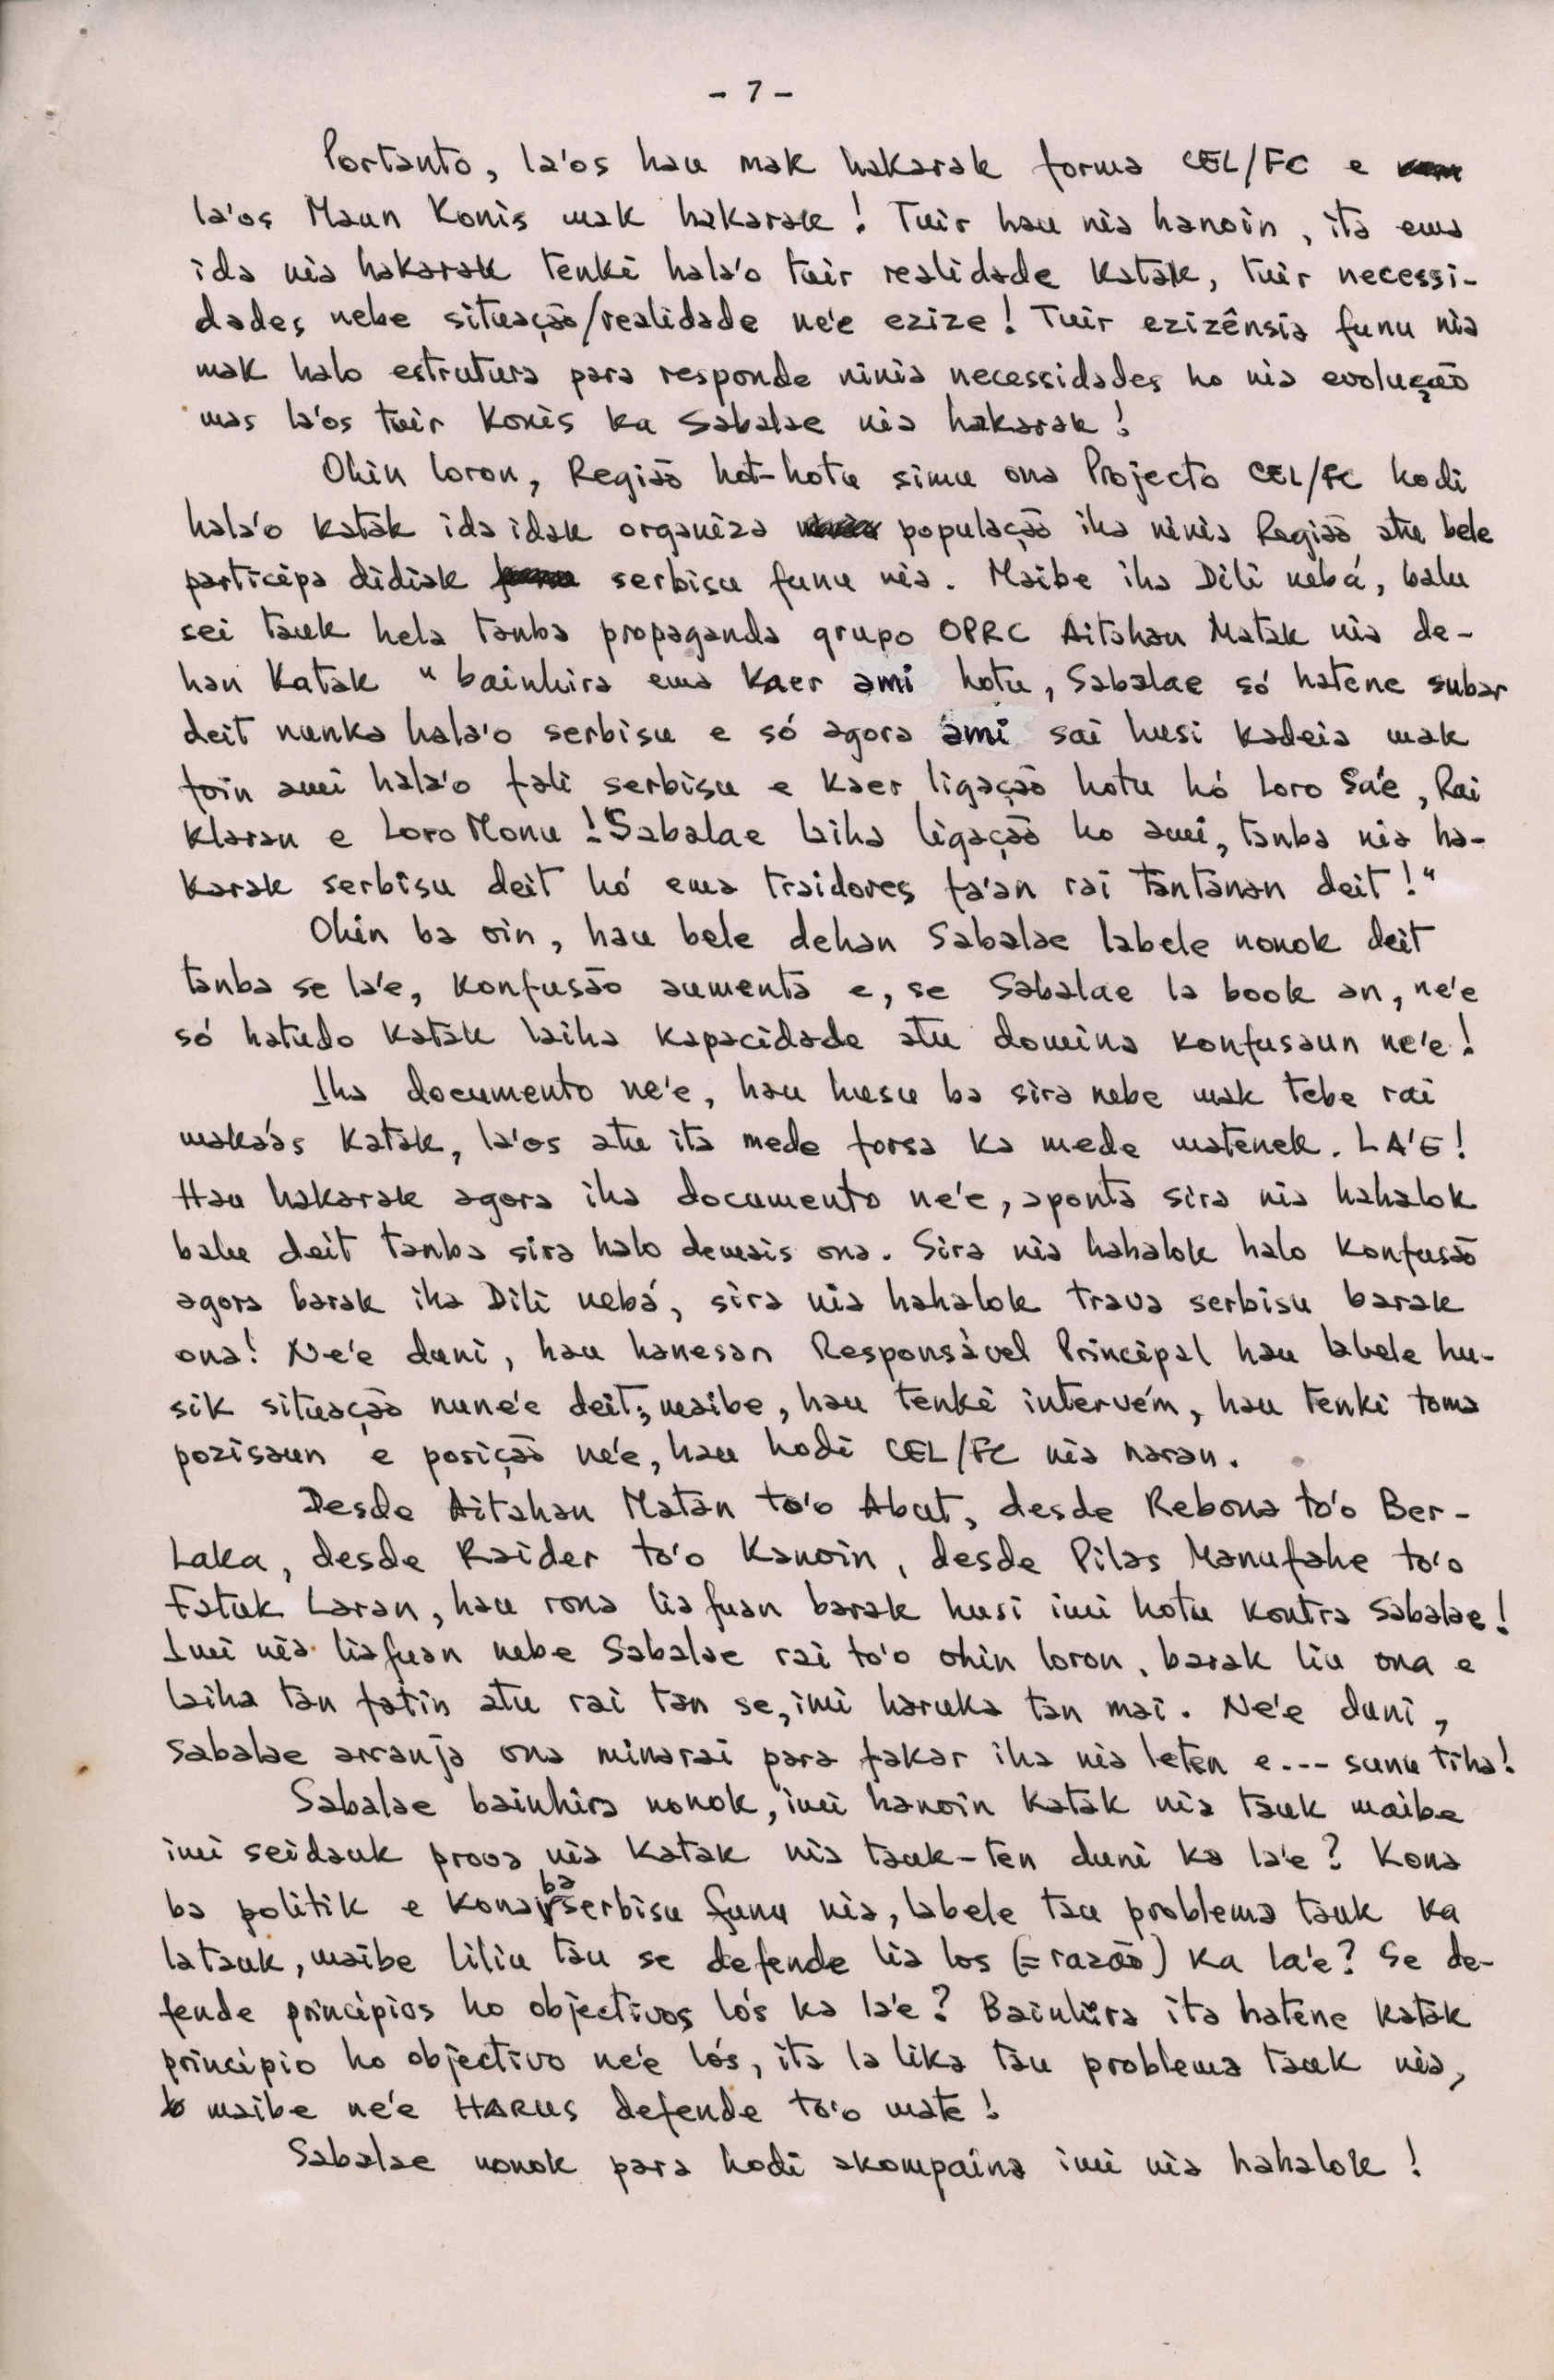 - 7 -
Portanto, la'os hau mak hakarak forma CEL/FC e
la'os Maun Konis mak hakarak! Tuir hau nia hanoin, ita ema
ida nia hakarak tenki hala'o tuir realidade katak, tuir necessi-
dades nebe situação/realidade ne'e ezize! Tuir ezizênsia funu nia
mak halo estrutura para responde ninia necessidades ho nia evolução
mas la'os tuir Konis ka Sabalae nia hakarak!
Ohin loron, Região hot-hotu simu ona Projecto CEL/FC hodi
hala'o katak ida idak organiza população iha ninia Região atu bele
participa didiak serbisu funu nia. Maibe iha Dili nebá, balu
sei tauk hela tanba propaganda grupo OPRC Aitahan Matak nia de-
han katak "bainhira ema kaer ami hotu, Sabalae só hatene subar
deit nunka hala'o serbisu e só agora ami sai husi kadeia mak
foin ami hala'o fali serbisu e kaer ligação hotu hó Loro Sa'e, Rai
Klaran e Loro Monu! Sabalae laiha ligação ho ami, tanba nia ha-
karak serbisu deit hó ema traidores fa'an rai tantanan deit!"
Ohin ba oin, hau bele dehan Sabalae labele nonok deit
tanba se la'e, konfusão aumenta e, se Sabalae la book an, ne'e
só hatudo katak laiha kapacidade atu domina konfusaun ne'e!
Iha documento ne'e, hau husu ba sira nebe mak tebe rai
maka'as katak, la'os atu ita mede forsa ka mede matenek. LA'E!
Hau hakarak agora iha documento ne'e, aponta sira nia hahalok
balu deit tanba sira halo demais ona. Sira nia hahalok halo konfusão
agora barak iha Dili nebá, sira nia hahalok trava serbisu barak
ona! Ne'e duni, hau hanesan Responsável Principal hau labele hu-
sik situação nune'e deit; maibe, hau tenki intervém, hau tenki toma
pozisaun e posição ne'e, hau hodi CEL/FC nia naran.
Desde Aitahan Matan to'o Abut, desde Rebona to'o Ber-
Laka, desde Raider to'o Kanoin, desde Pilas Manufahe to'o
Fatuk Laran, hau rona liafuan barak husi imi hotu kontra Sabalae!
Imi nia liafuan nebe Sabalae rai to'o ohin loron, barak liu ona e
laiha tan fatin atu rai tan se, imi haruka tan mai. Ne'e duni,
Sabalae arranja ona minarai para fakar iha nia leten e --- sunu tiha!
Sabalae bainhira nonok, imi hanoin katak nia tauk maibe
imi seidauk prova nia katak nia tauk-ten duni ka la'e? Kona
ba politik e kona ba serbisu funu nia, labele tau problema tauk ka
la tauk, maibe liliu tau se defende lia los (= razão) ka la'e? Se de-
fende principios ho objectivos lo's ka la'e? Bainhira ita hatene katak
principio ho objectivo ne'e lo's, ita la lika tau problema tauk nia,
maibe ne'e HARUS defende to'o mate!
Sabalae nonok para hodi akompaina imi nia hahalok!